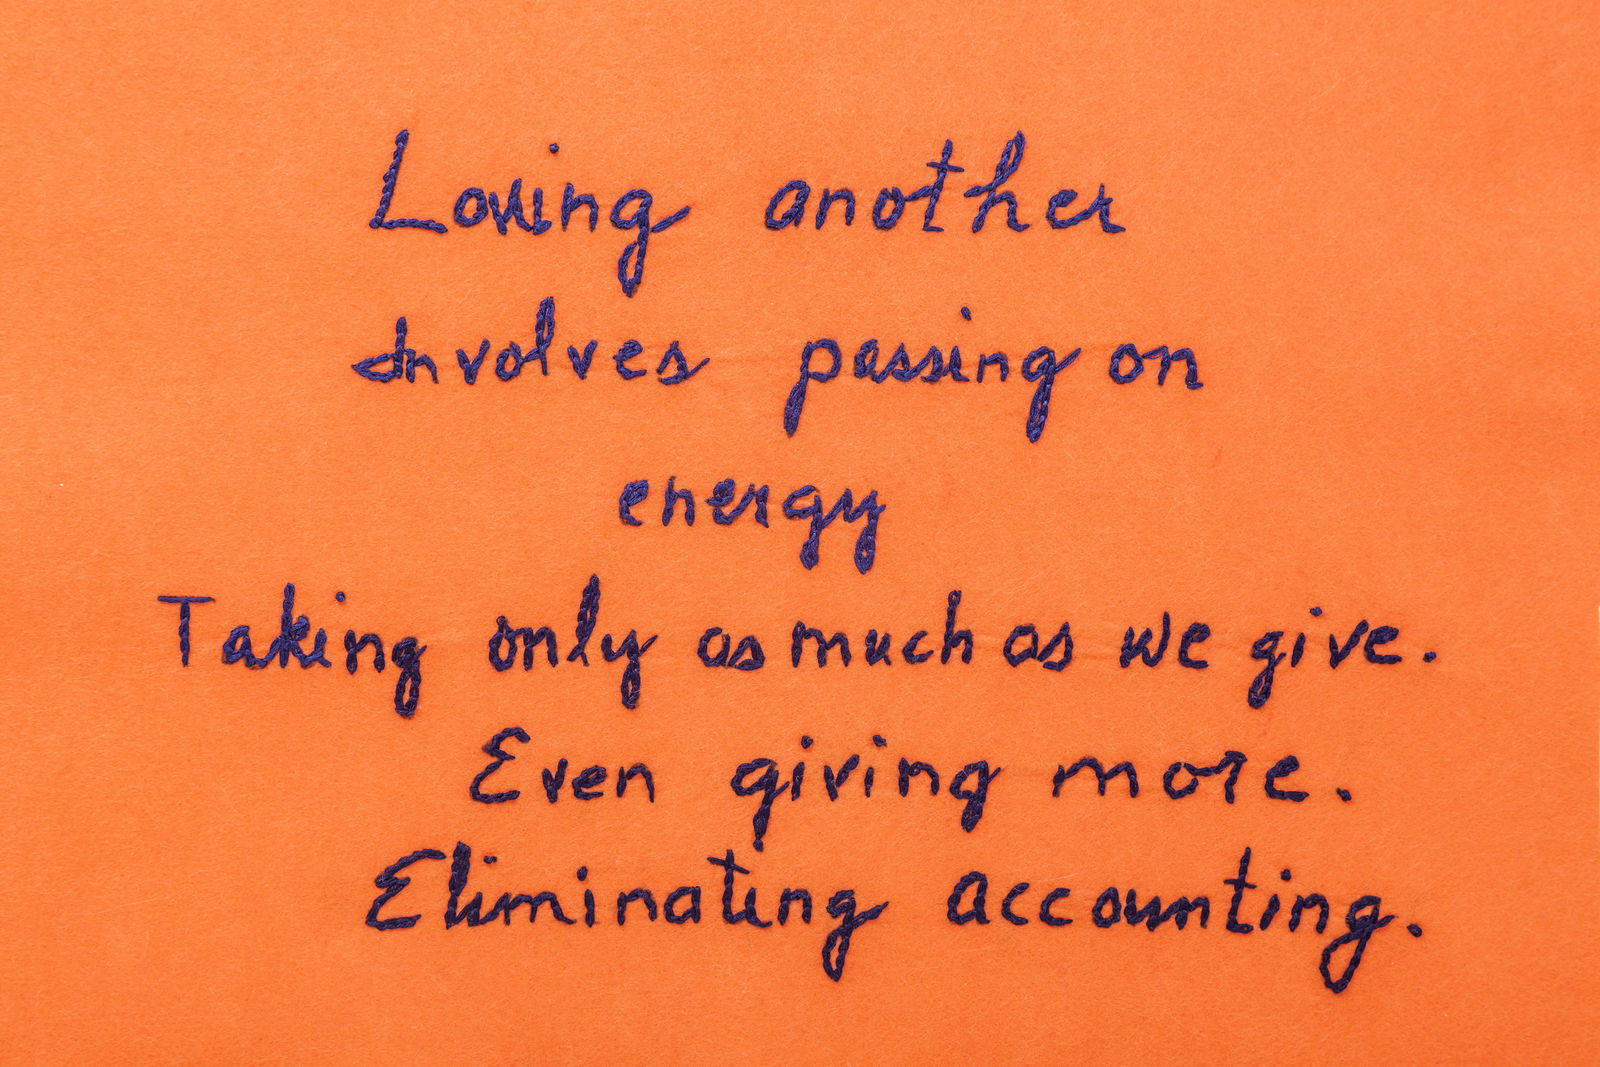 Loving another
Involves passing on
energy
Taking only as much as we give.
Even giving more.
Eliminating accounting.